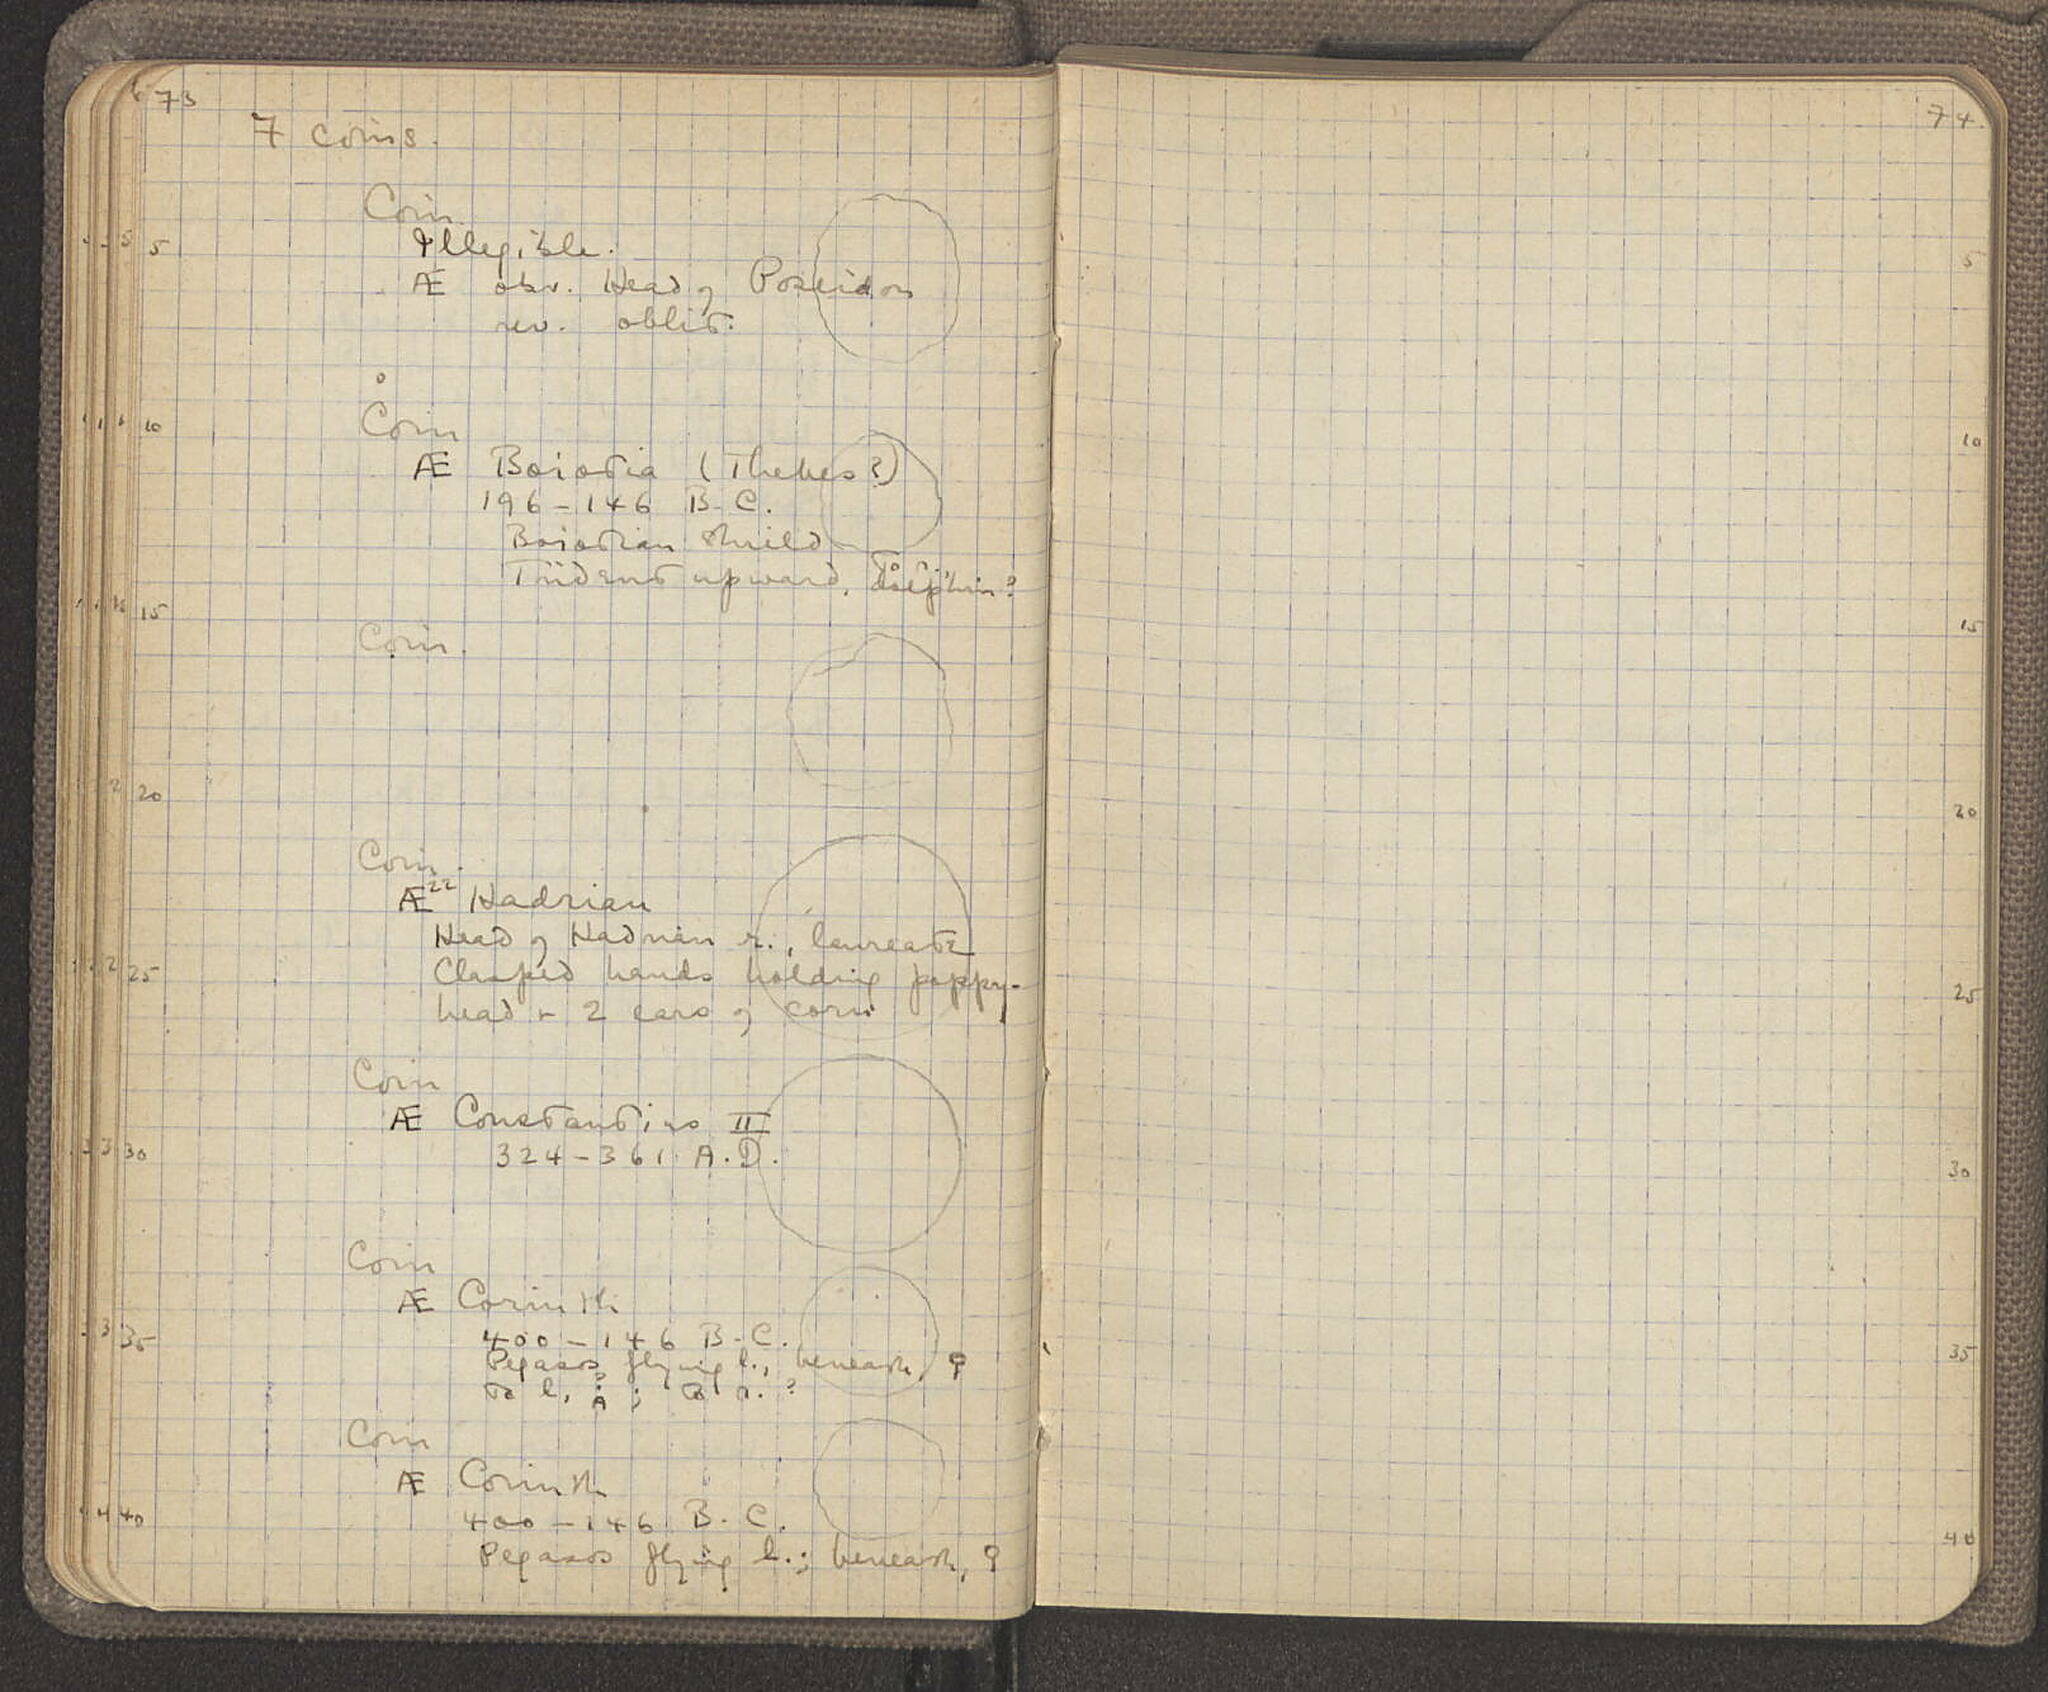 73
7 coins.
Coin
Illegible.
Æ obv. Head of Poseidon
rev. oblit.
5
Coin
10
Æ Boiotia (Thebes?)
196-146 B.C.
Boiotian shield
Trident upward, dolphin?
15
Coin.
20
Coin.
Æ22 Hadrian
Head of Hadrian r., laureate
Clasped hands holding poppy-
25
head + 2 ears of corn
Coin
Æ Constantius II
324-361 A.D.
30
Coin
Æ Corinth
400-146 B.C.
35
Pegasos flying l., beneath, ϙ
To l., A; to r. ?
Coin
Æ Corinth
400-146 B.C.
40
Pegasos flying l.; beneath, ϙ
74
5
10
15
20
25
30
35
40